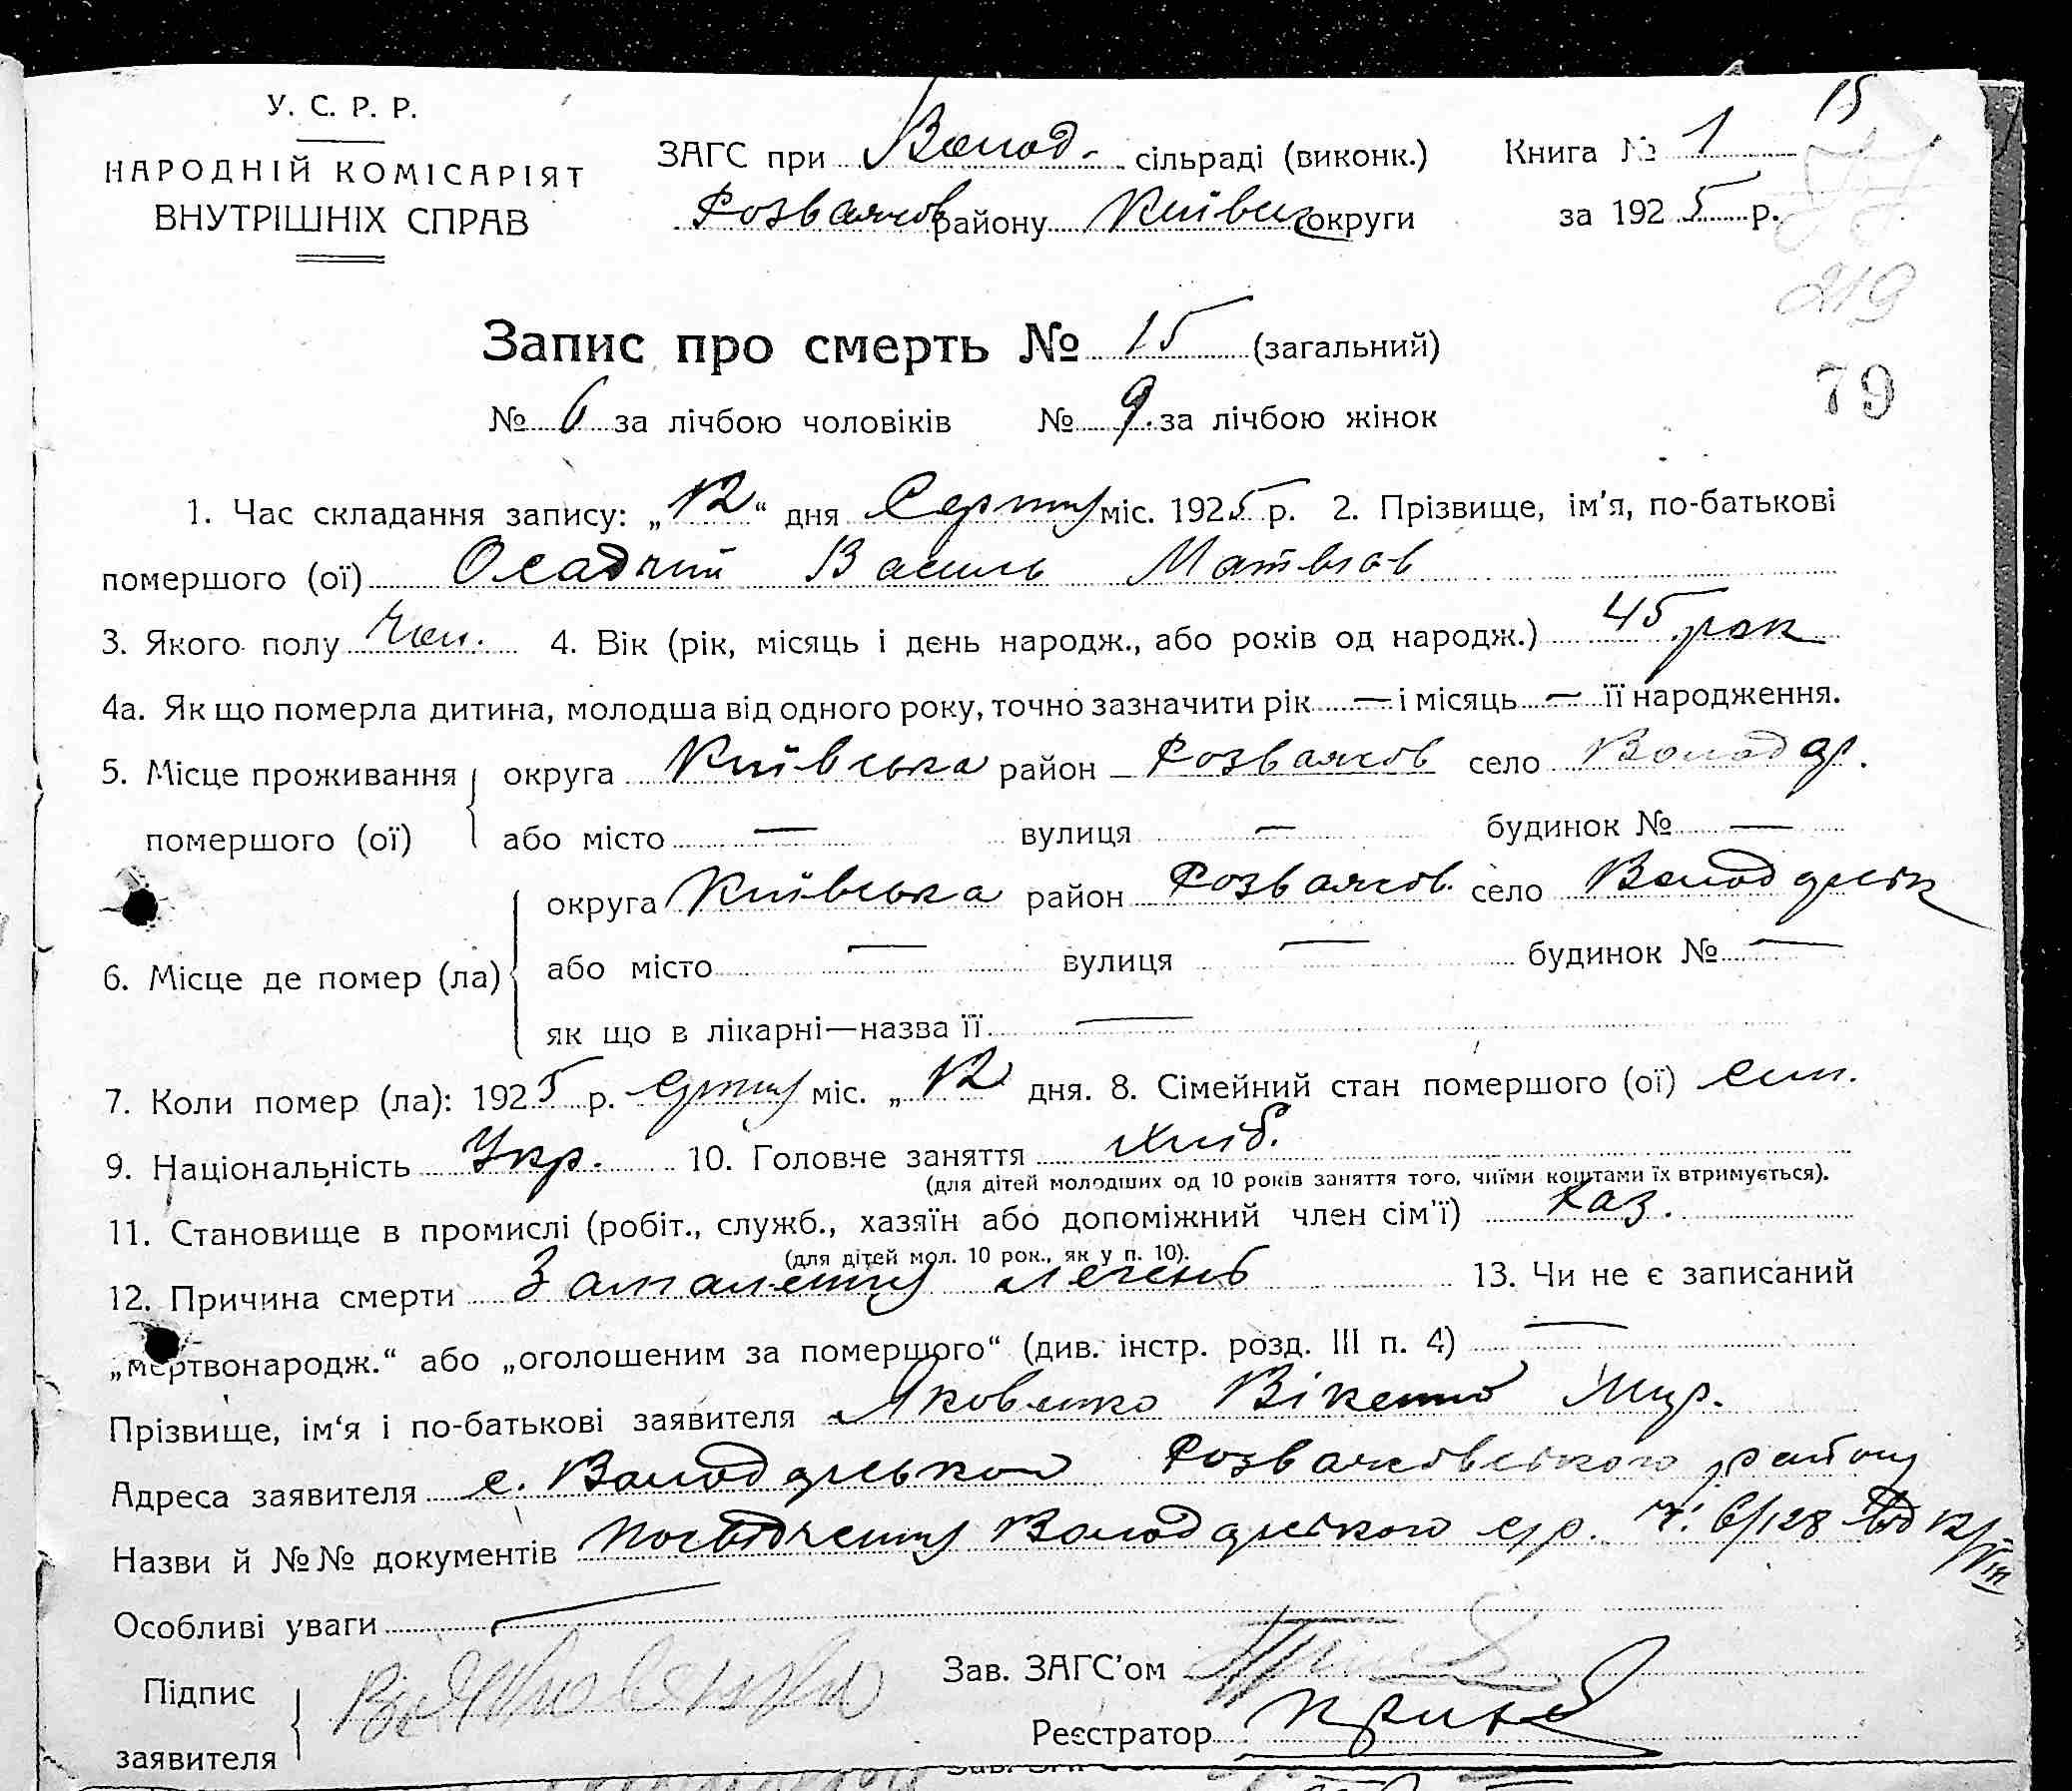 15
У. С. Р. Р.
НАРОДНІЙ КОМІСАРІЯТ
ВНУТРІШНІХ СПРАВ
ЗАГС при Волод- сільраді (виконк.) Книга № 1
Розважів району Київськ округи за 1925 р.
219
Запис про смерть № 15 (загальний)
79
№ 6 за лічбою чоловіків № 9. за лічбою жінок
1. Час складання запису: „12“ дня Серпня міс. 1925 р. 2. Прізвище, ім'я, по-батькові
помершого (ої) Осадчий Василь Матвієв
3. Якого полу Чол. 4. Вік (рік, місяць і день народж., або років од народж.) 45 рок
4а. Як що померла дитина, молодша від одного року, точно зазначити рік — і місяць — її народження.
5. Місце проживання округа Київська район Розважів село Володар.
помершого (ої) або місто — вулиця — будинок № —
округа Київська район Розважів. село Володарськ
6. Місце де помер (ла) або місто — вулиця — будинок № —
як що в лікарні—назва її —
7. Коли помер (ла): 1925 р. Серпня міс. „12 дня. 8. Сімейний стан помершого (ої)
9. Національність Укр. 10. Головне заняття Хліб.
(для дітей молодших од 10 років заняття того, чиїми коштами їх втримується).
11. Становище в промислі (робіт., служб., хазяїн або допоміжний член сім'ї) Хаз.
(для дітей мол. 10 рок., як у п. 10).
12. Причина смерти Запалення легень 13. Чи не є записаний
„мертвонародж.“ або „оголошеним за помершого“ (див. інстр. розд. III п. 4) —
Прізвище, ім‘я і по-батькові заявителя Яковенко Вікентій
Адреса заявителя с. Володарською Розважівського району
Назви й №№ документів Посвідчення Володарського с/р. ч. 6/128 від 12/VIII
Особливі уваги —
Підпис Зав. ЗАГС'ом
заявителя Реєстратор